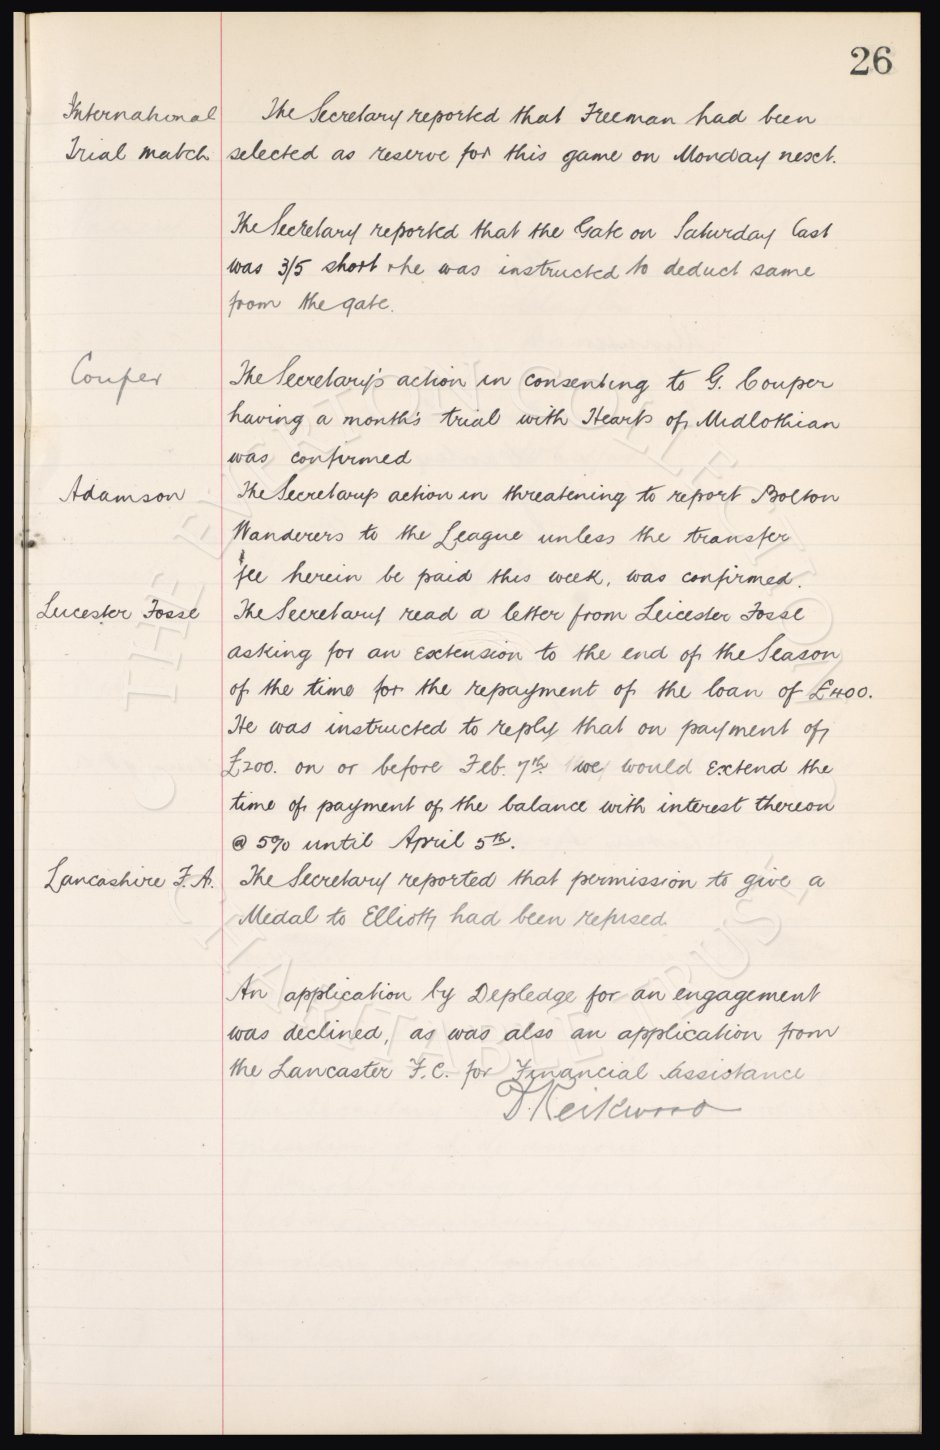 26
International The Secretary reported that Freeman had been
Trial match selected as reserve for this game on Monday next.
The Secretary reported that the Gate on Saturday last
was 3/5 short & he was instructed to deduct same
from the gate.
Couper The Secretary's action in consenting to G. Couper
having a month's trial with Hearts of Midlothian
was confirmed
Adamson The Secretarys action in threatening to report Bolton
Wanderers to the League unless the transfer
fee herein be paid this week, was confirmed.
Leicester Fosse The Secretary read a letter from Leicester Fosse
asking for an extension to the end of the Season
of the time for the repayment of the loan of £400.
He was instructed to reply that on payment of
£200. on or before Feb. 7th we would extend the
time of payment of the balance with interest thereon
@ 5% until April 5th.
Lancashire F.A. The Secretary reported that permission to give a
Medal to Elliott had been refused.
An application by Depledge for an engagement
was declined, as was also an application from
the Lancaster F.C. for Financial Assistance
D. Keikwood
© THE EVERTON COLLECTION CHARITABLE TRUST